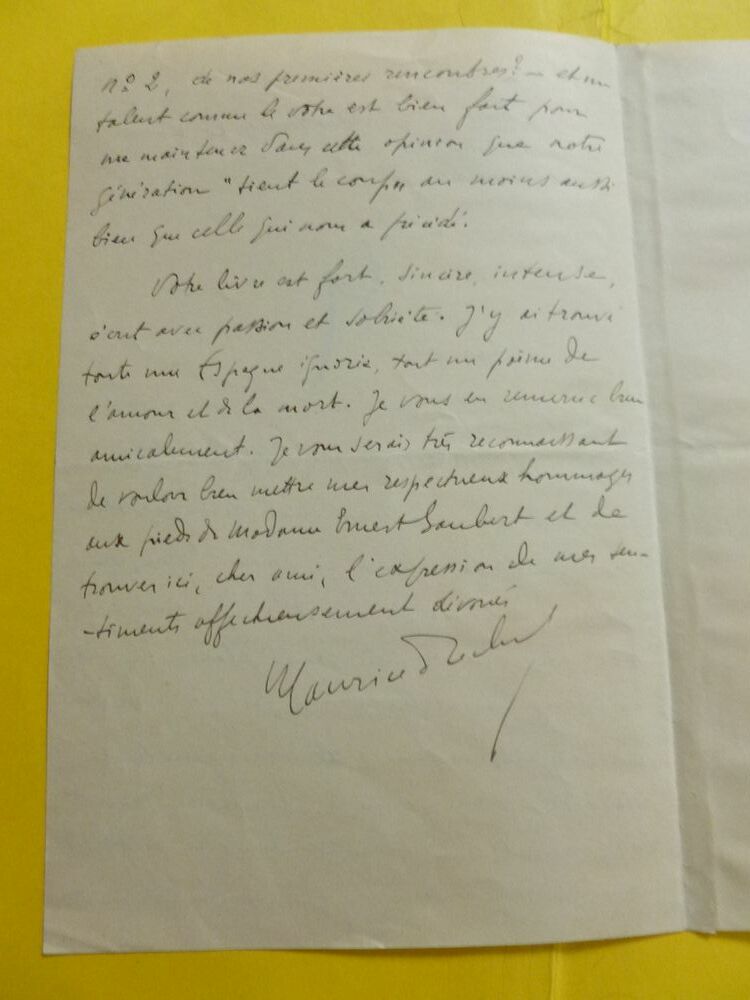 nº 2, de nos premières rencontres? — et un
talent comme le vôtre est bien fait pour
me maintenez dans cette opinion que notre
génération "tient le coup" au moins aussi
bien que celle qui nous a précédé.
Votre livre est fort, sincère, intense,
écrit avec passion et sobriété. J'y ai trouvé
toute une Espagne ignorée, tout un poème de
l'amour et de la mort. Je vous en remercie bien
amicalement. Je vous serais très reconnaissant
de vouloir bien mettre mes respectueux hommages
aux pieds de Madame Ernest Gaubert et de
trouver ici, cher ami, l'expression de mes sen-
-timents affectueusement dévoués
Maurice